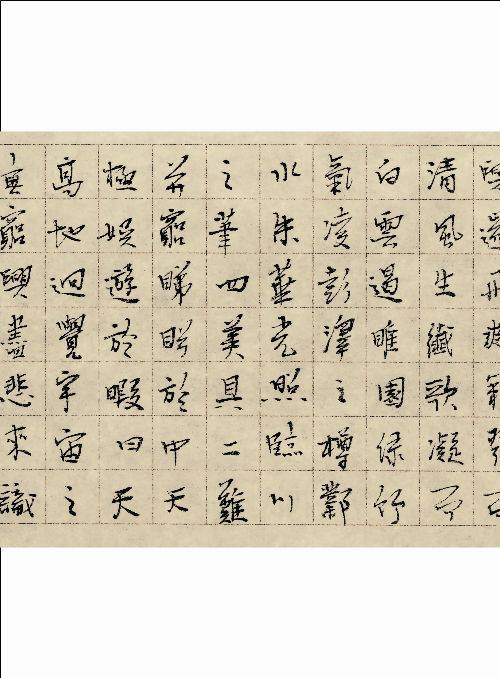 清風生纖歌凝而
白雲遏睢園綠竹
氣凌彭澤之樽鄴
水朱華光照臨川
之筆四美具二難
并窮睇眄於中天
極娛遊於暇日天
高地迥覺宇宙之
窮興盡悲來識